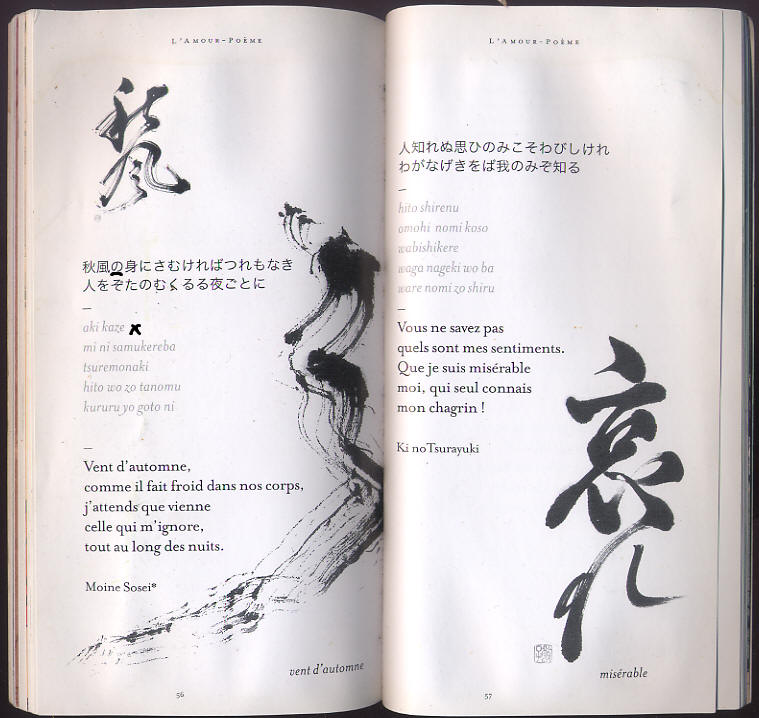 L'Amour-Poème
秋風
秋風の身にさむければつれもなき
人をぞたのむくるる夜ごとに
aki kaze
mi ni samukereba
tsuremonaki
hito wo zo tanomu
kururu yo goto ni
Vent d'automne,
comme il fait froid dans nos corps,
j'attends que vienne
celle qui m'ignore,
tout au long des nuits.
Moine Sosei*
vent d'automne
56
L'Amour-Poème
人知れぬ思ひのみこそわびしけれ
わがなげきをば我のみぞ知る
hito shirenu
omohi nomi koso
wabishikere
waga nageki wo ba
ware nomi zo shiru
Vous ne savez pas
quels sont mes sentiments.
Que je suis misérable
moi, qui seul connais
mon chagrin !
Ki noTsurayuki
哀れ
misérable
57